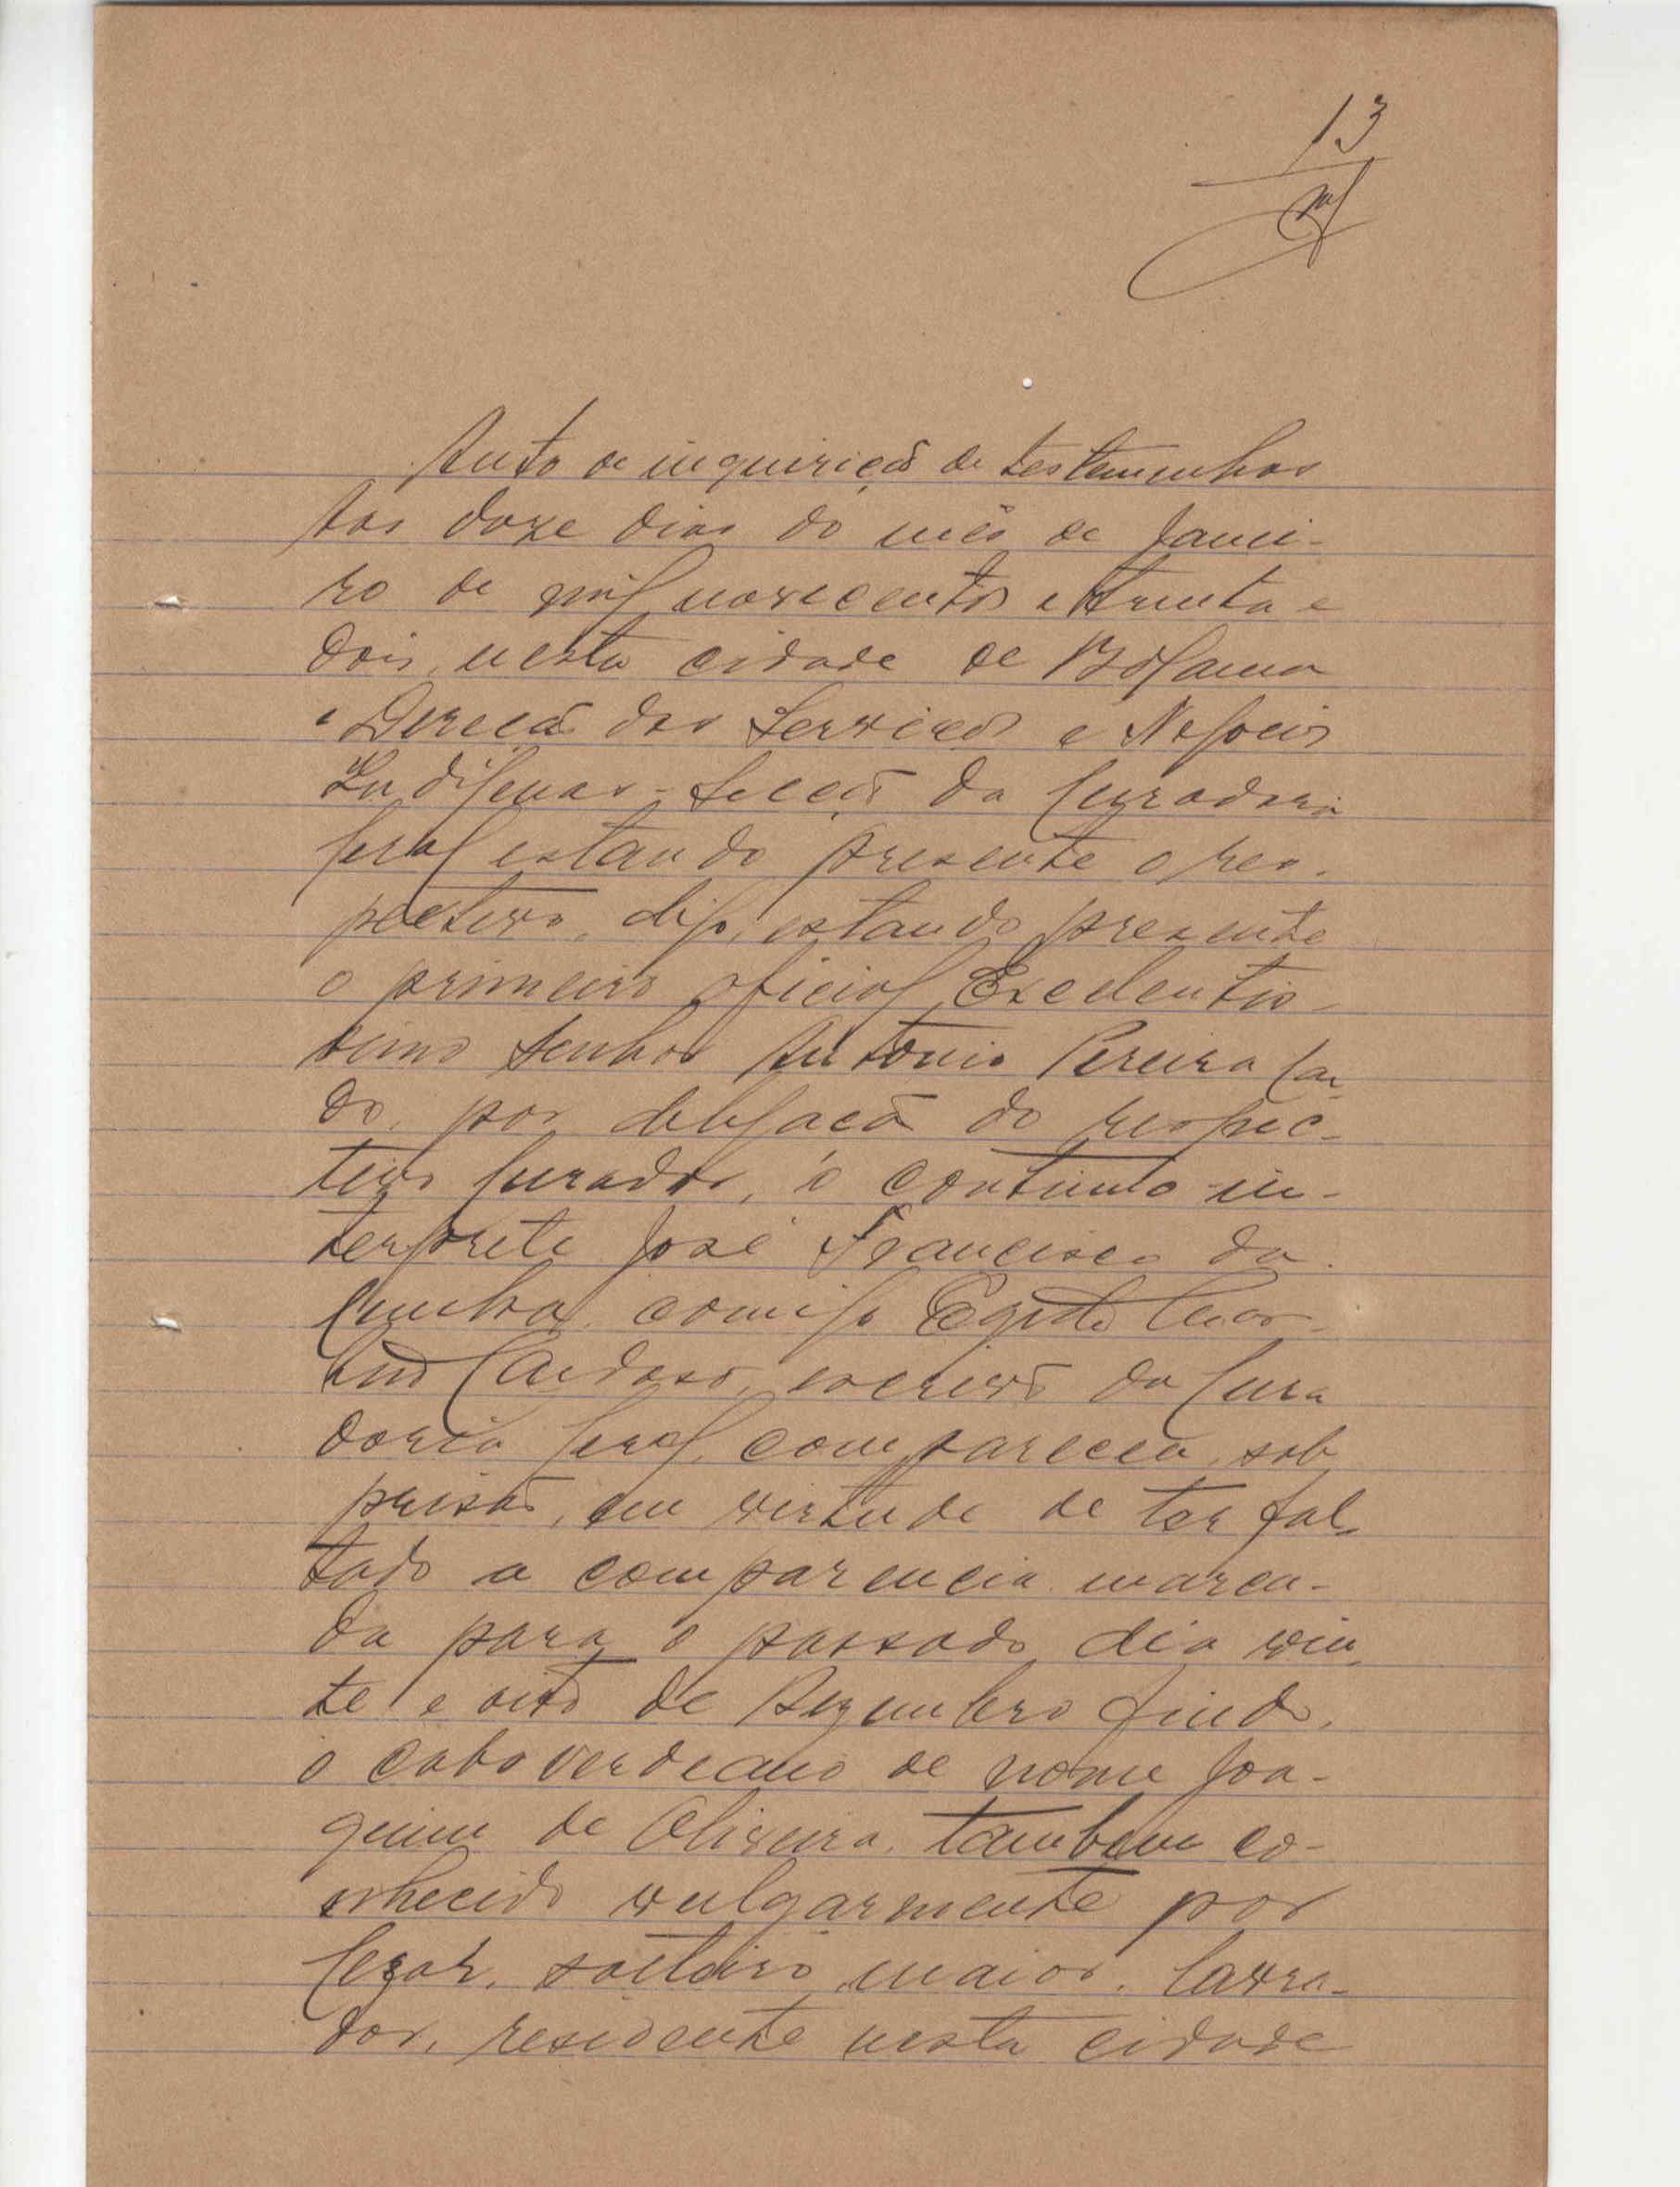 13
Auto de inquirição de testemunhas
Aos doze dias do mês de Janei-
ro de mil novecentos e trinta e
dois, nesta cidade de Bolama
e Direcção dos Serviços e Negocios
Indigenas - Secção da Curadoria
Geral estando presente o res-
pectivo, digo, estando presente
o primeiro oficial Excelentis-
simo Senhor Antonio Pereira Car-
do, por delegação do respec-
tivo Curador, o contínuo-in-
terprete José Francisco da
Cunha, comigo Egidio
Cardoso, escrivão da Cura
doria Geral, compareceu, sob
prisão, em virtude de ter fal-
tado a comparencia marca-
da para o passado dia vin-
te e oito de Dezembro findo,
o caboverdeano de nome Joa-
quim de Oliveira, tambem co-
nhecido vulgarmente por
Cezar, solteiro, maior, lavra-
dor, residente nesta cidade